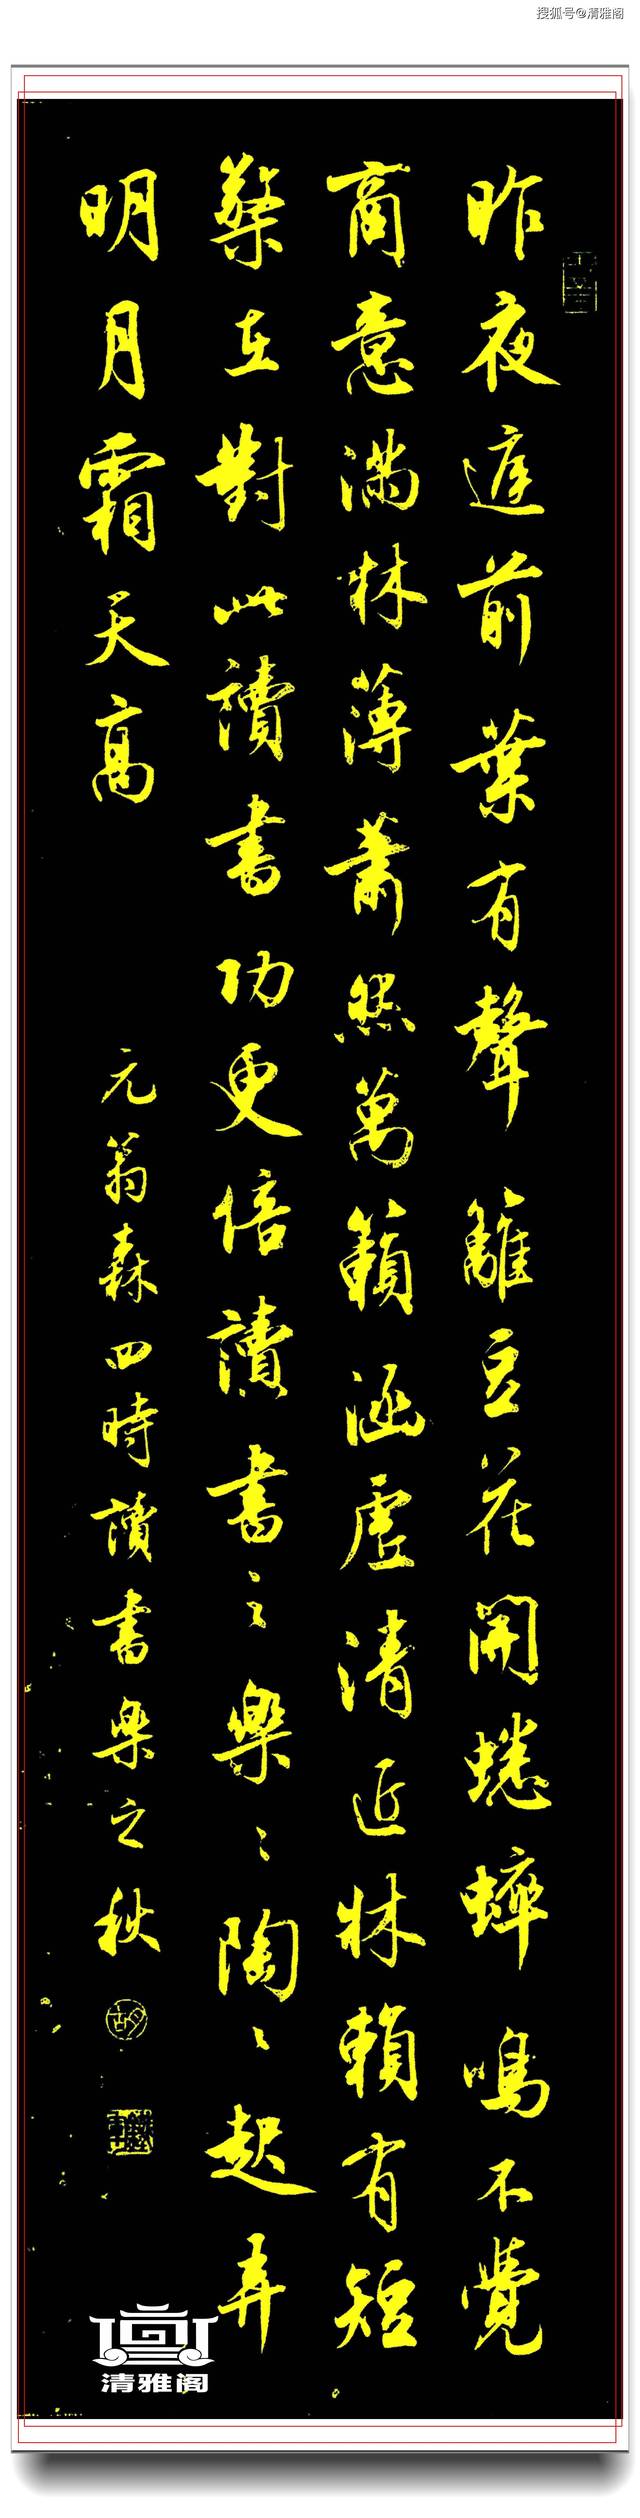 搜狐号@清雅阁
昨夜庭前葉有聲籬豆花開蟋蟀鳴不覺
商意滿林薄蕭然萬籟涵虛清近牀賴有短
檠在對此讀書功更倍讀書之樂〻陶〻起弄
明月霜天高 元翁森四時讀書樂之秋
清雅阁